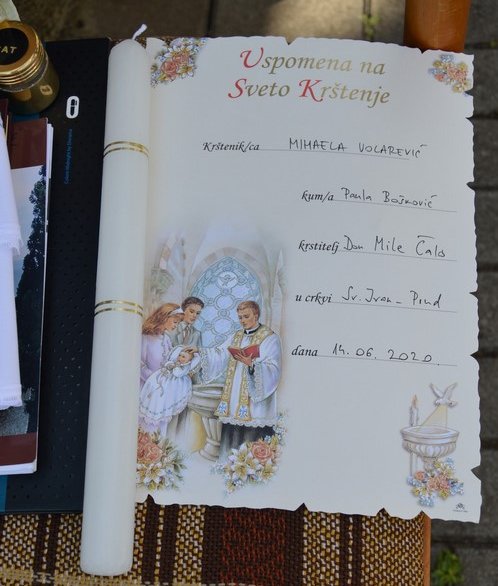 Uspomena na
Sveto Krštenje
Krštenik/ca MIHAELA VOLAREVIĆ
kum/a Paula Bošković
krstitelj Don Mile Čalo
u crkvi Sv. Ivan - Prud
dana 14. 06. 2020.